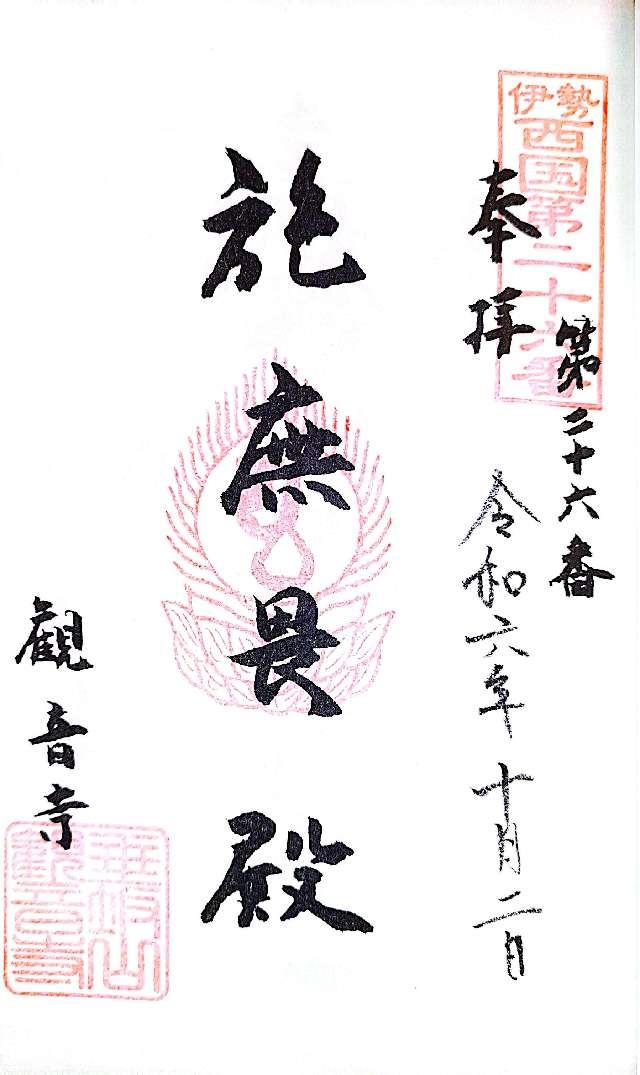 伊勢
西国第二十六番
第二十六番
奉拝
令和六年十月二日
施無畏殿
觀音寺
觀音寺